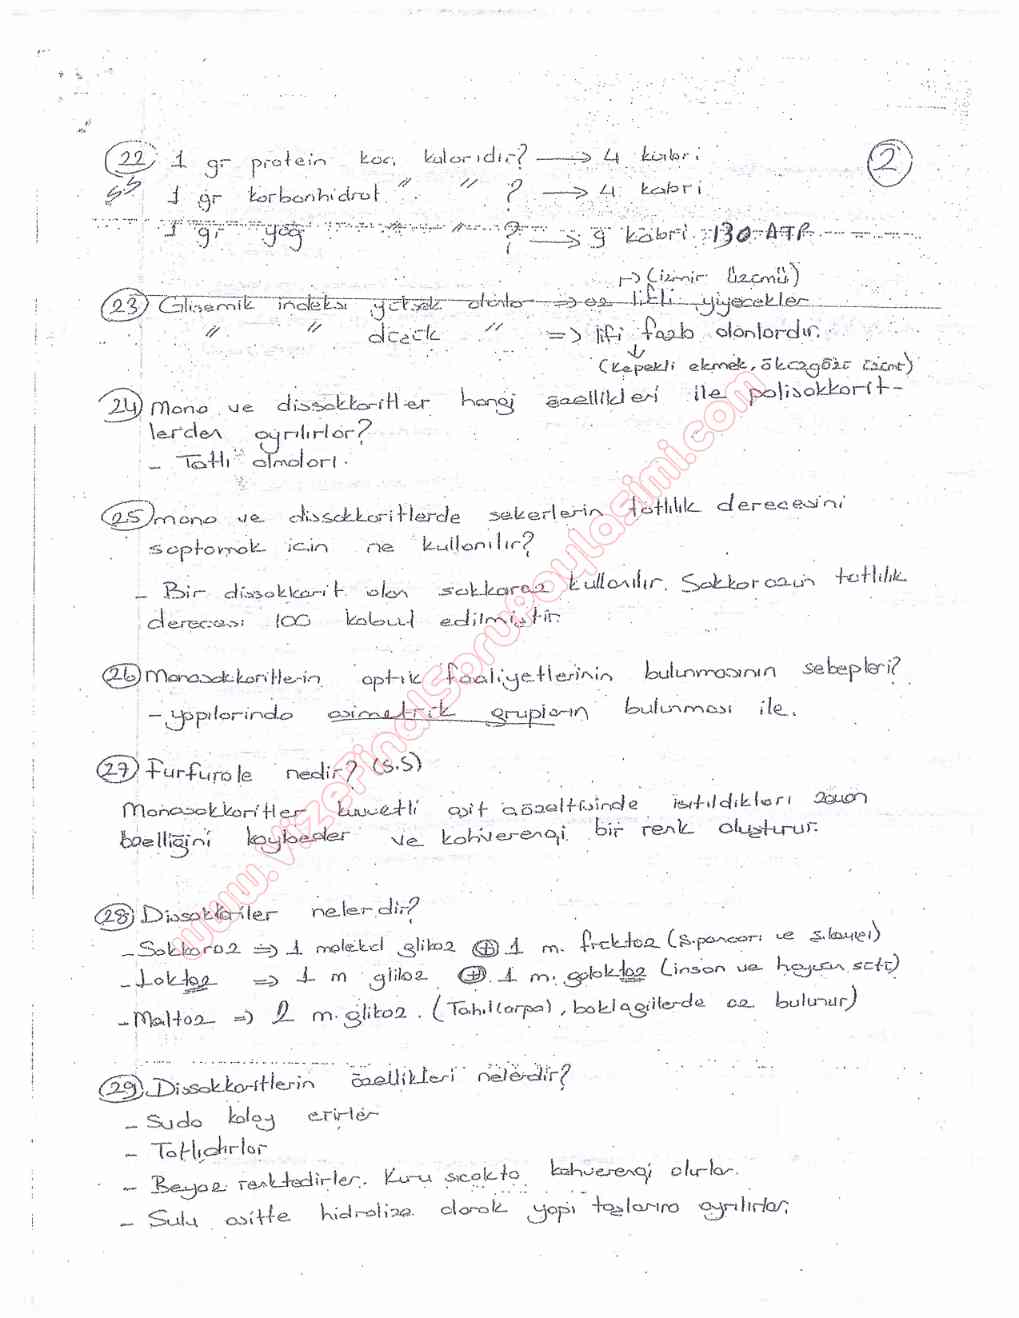 2
22 1 gr protein kaç kaloridir? → 4 kalori
SS 1 gr karbonhidrat " " ? → 4 kalori
1 gr yağ " " ? → 9 kalori 130 ATP
→ (izmir üzümü)
23 Glisemik indeksi yüksek olanlar => az lifli yiyecekler
" " düşük " => lifi fazla olanlardır.
(Kepekli ekmek, öküzgözü üzümü)
24 Mono ve dissakkaritler hangi özellikleri ile polisakkarit-
lerden ayrılırlar?
- Tatlı olmaları.
25 mono ve dissakkaritlerde şekerlerin tatlılık derecesini
saptamak için ne kullanılır?
- Bir dissakkarit olan sakkaroz kullanılır. Sakkarozun tatlılık
derecesi 100 kabul edilmiştir.
26 Monosakkaritlerin optik faaliyetlerinin bulunmasının sebepleri?
- yapılarında asimetrik grupların bulunması ile.
27 Furfurole nedir? (S.S)
Monosakkaritler kuvvetli asit çözeltisinde ısıtıldıkları zaman
özelliğini kaybeder ve kahverengi bir renk oluşturur.
28 Dissakkariler nelerdir?
- Sakkaroz => 1 molekül glikoz + 1 m. früktoz (ş.pancarı ve ş.kamışı)
- Laktoz => 1 m glikoz + 1 m. galaktoz (insan ve hayvan sütü)
- Maltoz => 2 m. glikoz. (Tahıl(arpa), baklagillerde az bulunur)
29 Dissakkaritlerin özellikleri nelerdir?
- Suda kolay erirler
- Tatlıdırlar
- Beyaz renktedirler. Kuru sıcakta kahverengi olurlar.
- Sulu asitte hidrolize olarak yapı taşlarına ayrılırlar.
www.VizeFinalSoruPaylasimi.com